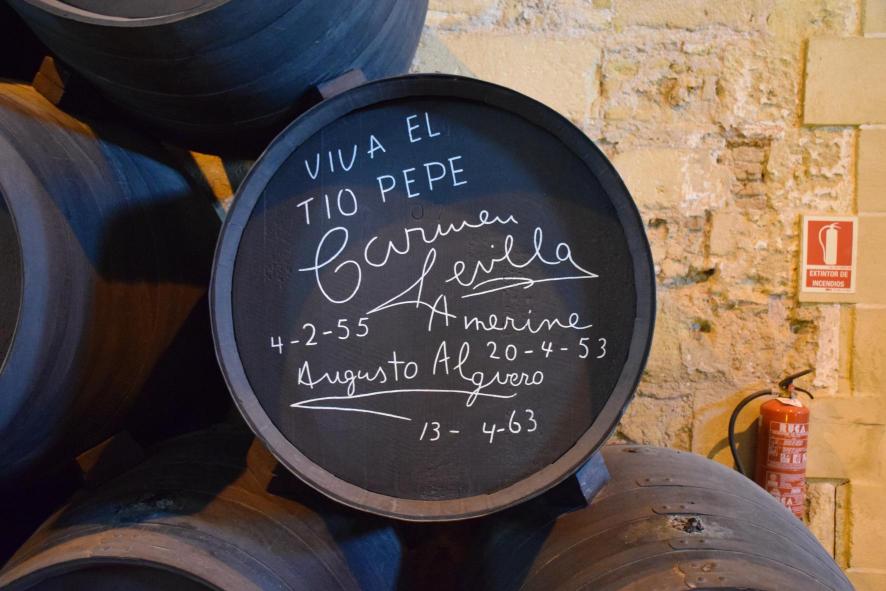 VIVA EL
TIO PEPE
Carmen
Sevilla
4-2-55
Amerine
20-4-53
Augusto Alguero
13-4-63
EXTINTOR DE
INCENDIOS